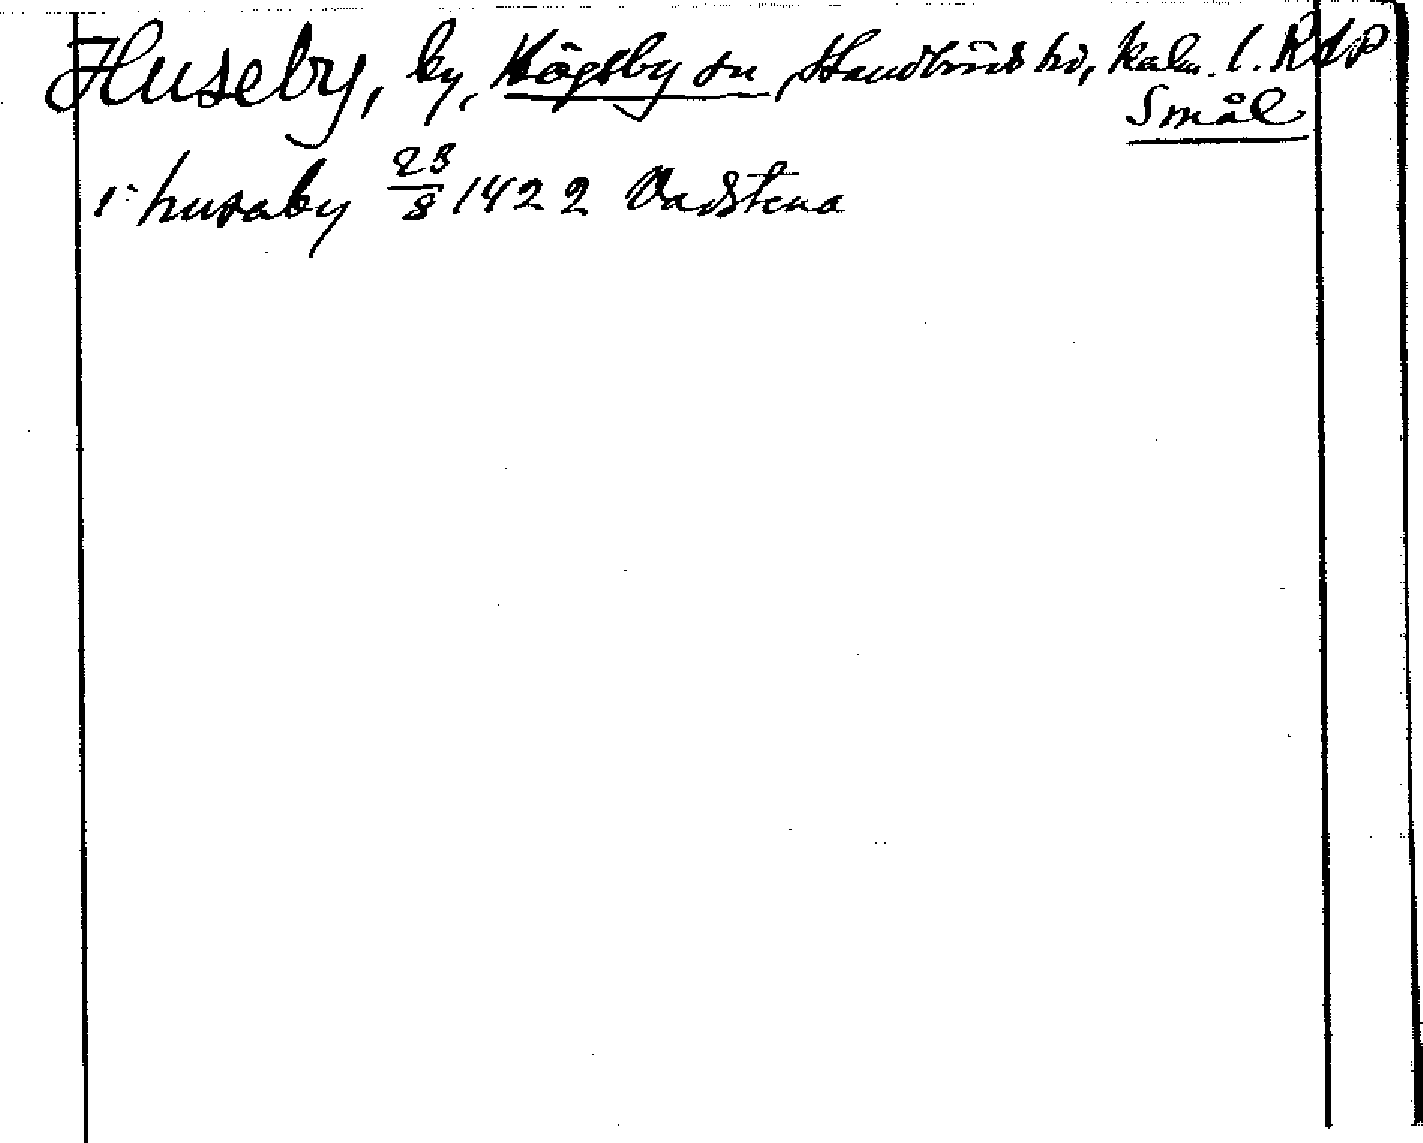 Huseby, by, Högsby sn Handbörds hd, Kalm. l. Rdp
Smål
i husaby 28/8 1422 Vadstena